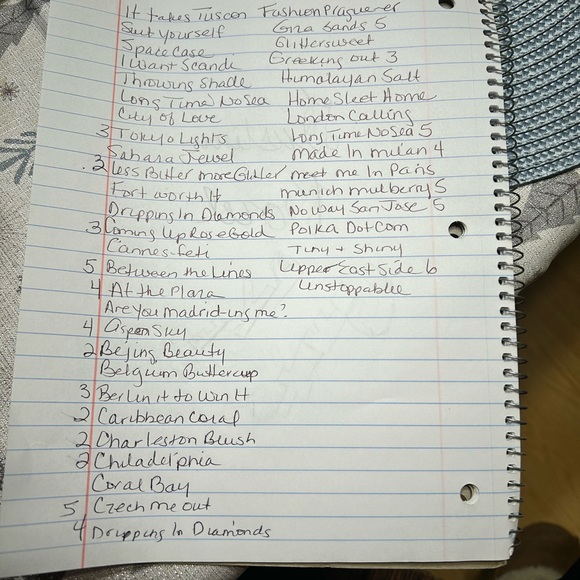 It takes Tuscon Fashion Praguener
Suit yourself Gna Sands 5
Space Case Glittersweet
I Want Scandi Greeking out 3
Throwing Shade Humalayan Salt
Long Time No Sea Home Sleet Home
City of Love London Calling
3 Tokyo Lights Long Time No Sea 5
Sahara Jewel made In milan 4
. 2 Less Bitter more Glitter meet me In Paris
Fort worth It munich mulberry 5
Dripping In Diamonds No Way San Jose 5
3 Coming Up Rose Gold Polka Dot Com
Cannes-feti Tiny + Shiny
5 Between the Lines Upper East Side 6
4 At the Plaza Unstoppable
Are you madrid-ing me?
4 aspen Sky
2 Beijing Beauty
Belgium Buttercup
3 Berlin it to win It
2 Caribbean Coral
2 Charleston Blush
2 Chiladelphia
Coral Bay
5 Czech me out
4 Dripping In Diamonds